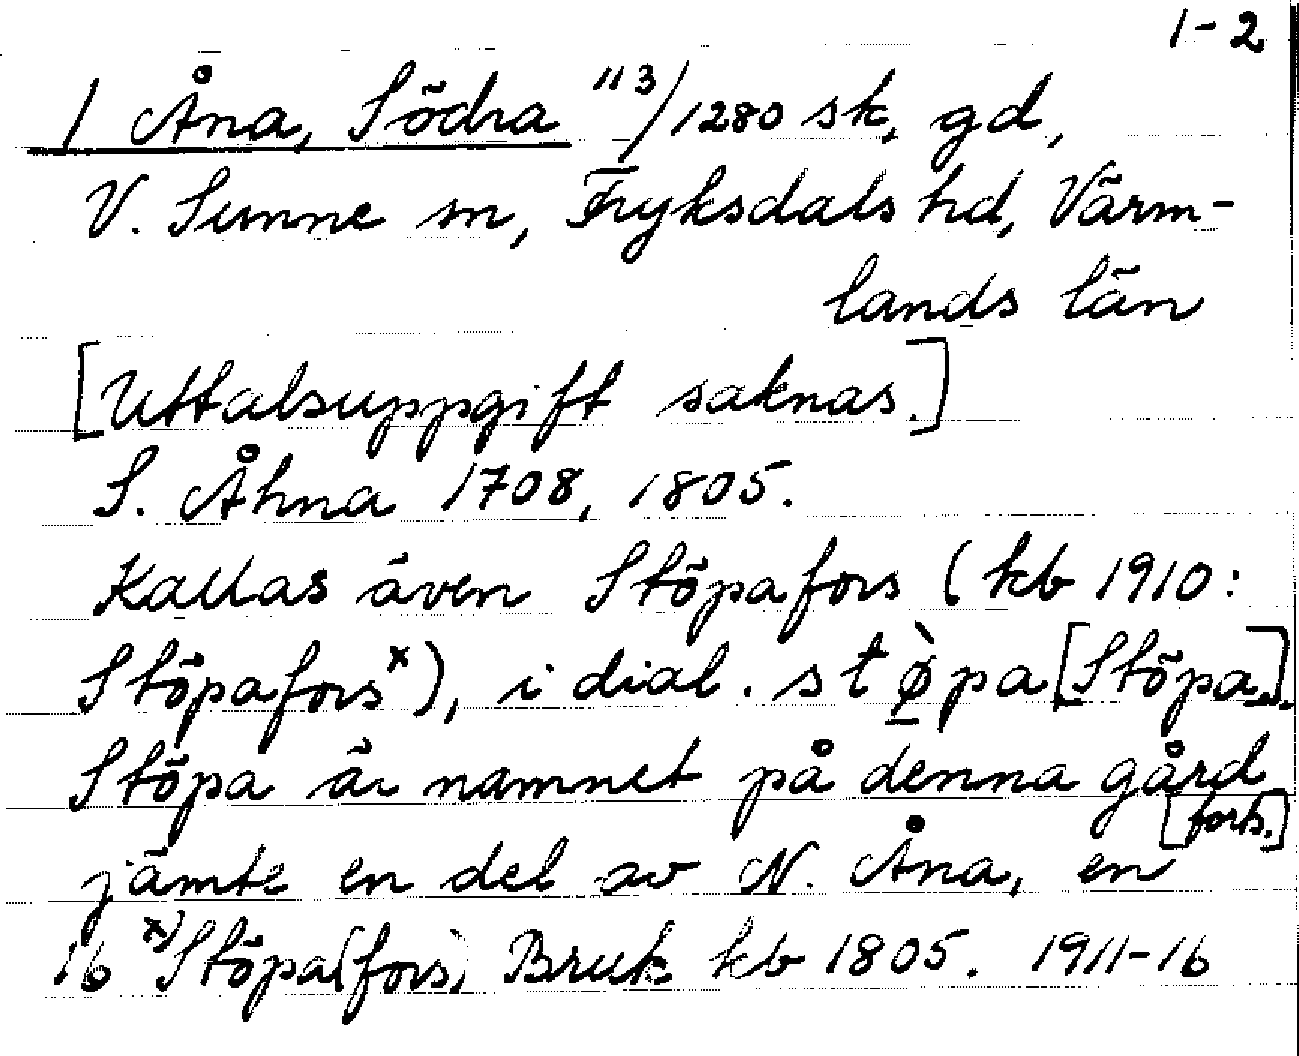 1-2
1 Åna, Södra 113/1280 sk, gd,
V. Sunne sn, Fryksdals hd, Värm-
lands län
[Uttalsuppgift saknas.]
S. Åhna 1708, 1805.
Kallas även Stöpafors (kb 1910:
Stöpafors x), i dial. stø̀pa [Stöpa.].
Stöpa är namnet på denna gård
jämte en del av N. Åna, en [forts.]
16 x) Stöpa(fors) Bruk kb 1805. 1911-16